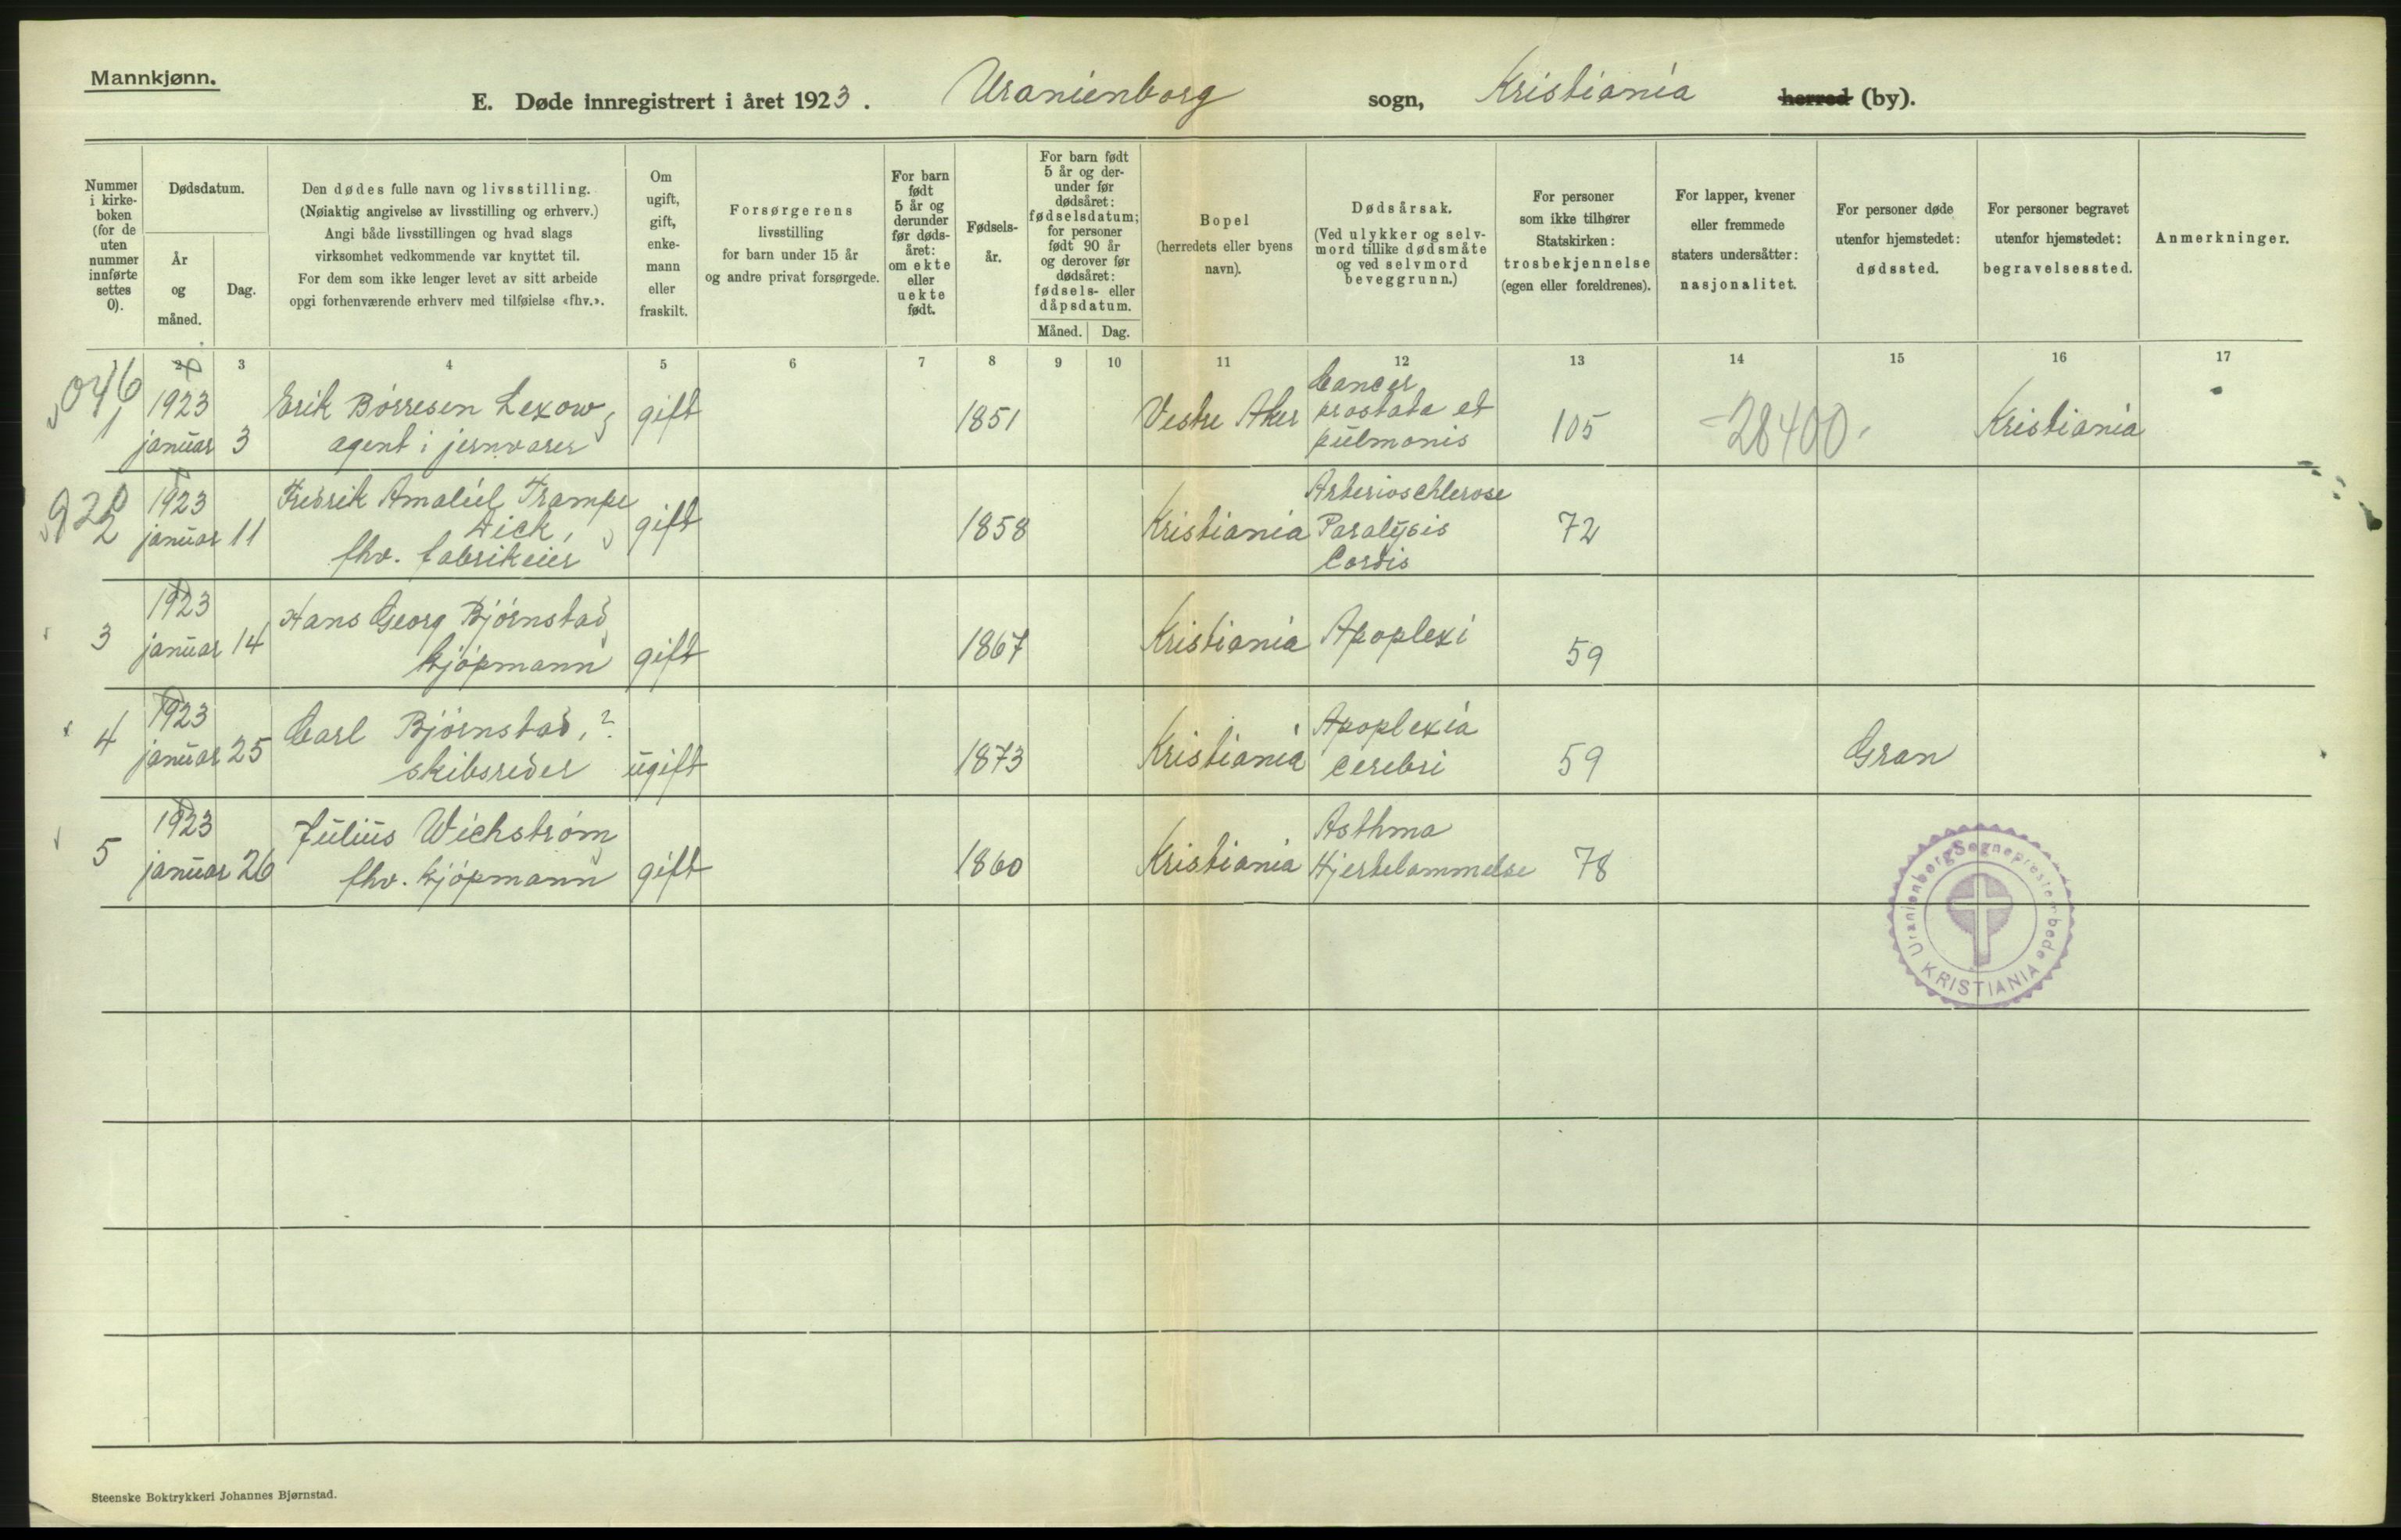 Mannkjønn.
E. Døde innregistrert i året 1923. Uranienborg sogn, Kristiania herred (by).
Nummer i kirkeboken (for de uten nummer innførte settes 0).
Dødsdatum.
År og måned.
Dag.
Den dødes fulle navn og livsstilling.
(Nøiaktig angivelse av livsstilling og erhverv.)
Angi både livsstillingen og hvad slags
virksomhet vedkommende var knyttet til.
For dem som ikke lenger levet av sitt arbeide
opgi forhenværende erhverv med tilføielse «fhv.».
Om ugift, gift, enkemann eller fraskilt.
Forsørgerens
livsstilling
for barn under 15 år
og andre privat forsørgede.
For barn født 5 år og derunder før dødsåret: om ekte eller uekte født.
Fødselsår.
For barn født 5 år og derunder før dødsåret: fødselsdatum; for personer født 90 år og derover før dødsåret: fødsels- eller dåpsdatum.
Måned. Dag.
Bopel
(herredets eller byens
navn).
Dødsårsak.
(Ved ulykker og selvmord tillike dødsmåte og ved selvmord beveggrunn.)
For personer
som ikke tilhører
Statskirken:
trosbekjennelse
(egen eller foreldrenes).
For lapper, kvener
eller fremmede
staters undersåtter:
nasjonalitet.
For personer døde
utenfor hjemstedet:
dødssted.
For personer begravet
utenfor hjemstedet:
begravelsessted.
Anmerkninger.
2 3 4 5 6 7 8 9 10 11 12 13 14 15 16 17
046
1 1923 januar 3 Erik Børresen Lexow, agent i jernvarer gift 1851 Vestre Aker Cancer prostata et pulmonis 105 28400 Kristiania
920
2 1923 januar 11 Fredrik Amaliel Trampe Dick, fhv. fabrikeier gift 1858 Kristiania Arterioschlerose Paralysis Cordis 72
3 1923 januar 14 Hans Georg Bjørnstad kjøpmann gift 1867 Kristiania Apoplexi 59
4 1923 januar 25 Carl Bjørnstad, ? skibsreder ugift 1873 Kristiania Apoplexia cerebri 59 Gran
5 1923 januar 26 Julius Wichstrøm fhv. kjøpmann gift 1860 Kristiania Asthma Hjertelammelse 78
Uranienborg Sogneprestembede
KRISTIANIA
Steenske Boktrykkeri Johannes Bjørnstad.